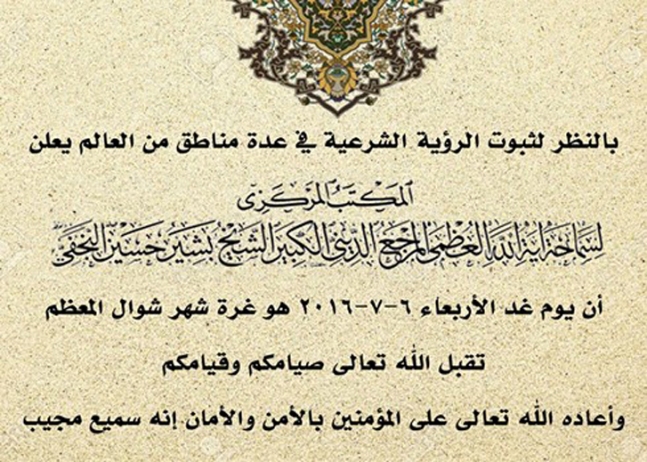 بالنظر لثبوت الرؤية الشرعية في عدة مناطق من العالم يعلن
المكتب المركزي
لسماحة آية الله العظمى المرجع الديني الكبير الشيخ بشير حسين النجفي
أن يوم غد الأربعاء ٦-٧-٢٠١٦ هو غرة شهر شوال المعظم
تقبل الله تعالى صيامكم وقيامكم
وأعاده الله تعالى على المؤمنين بالأمن والأمان إنه سميع مجيب